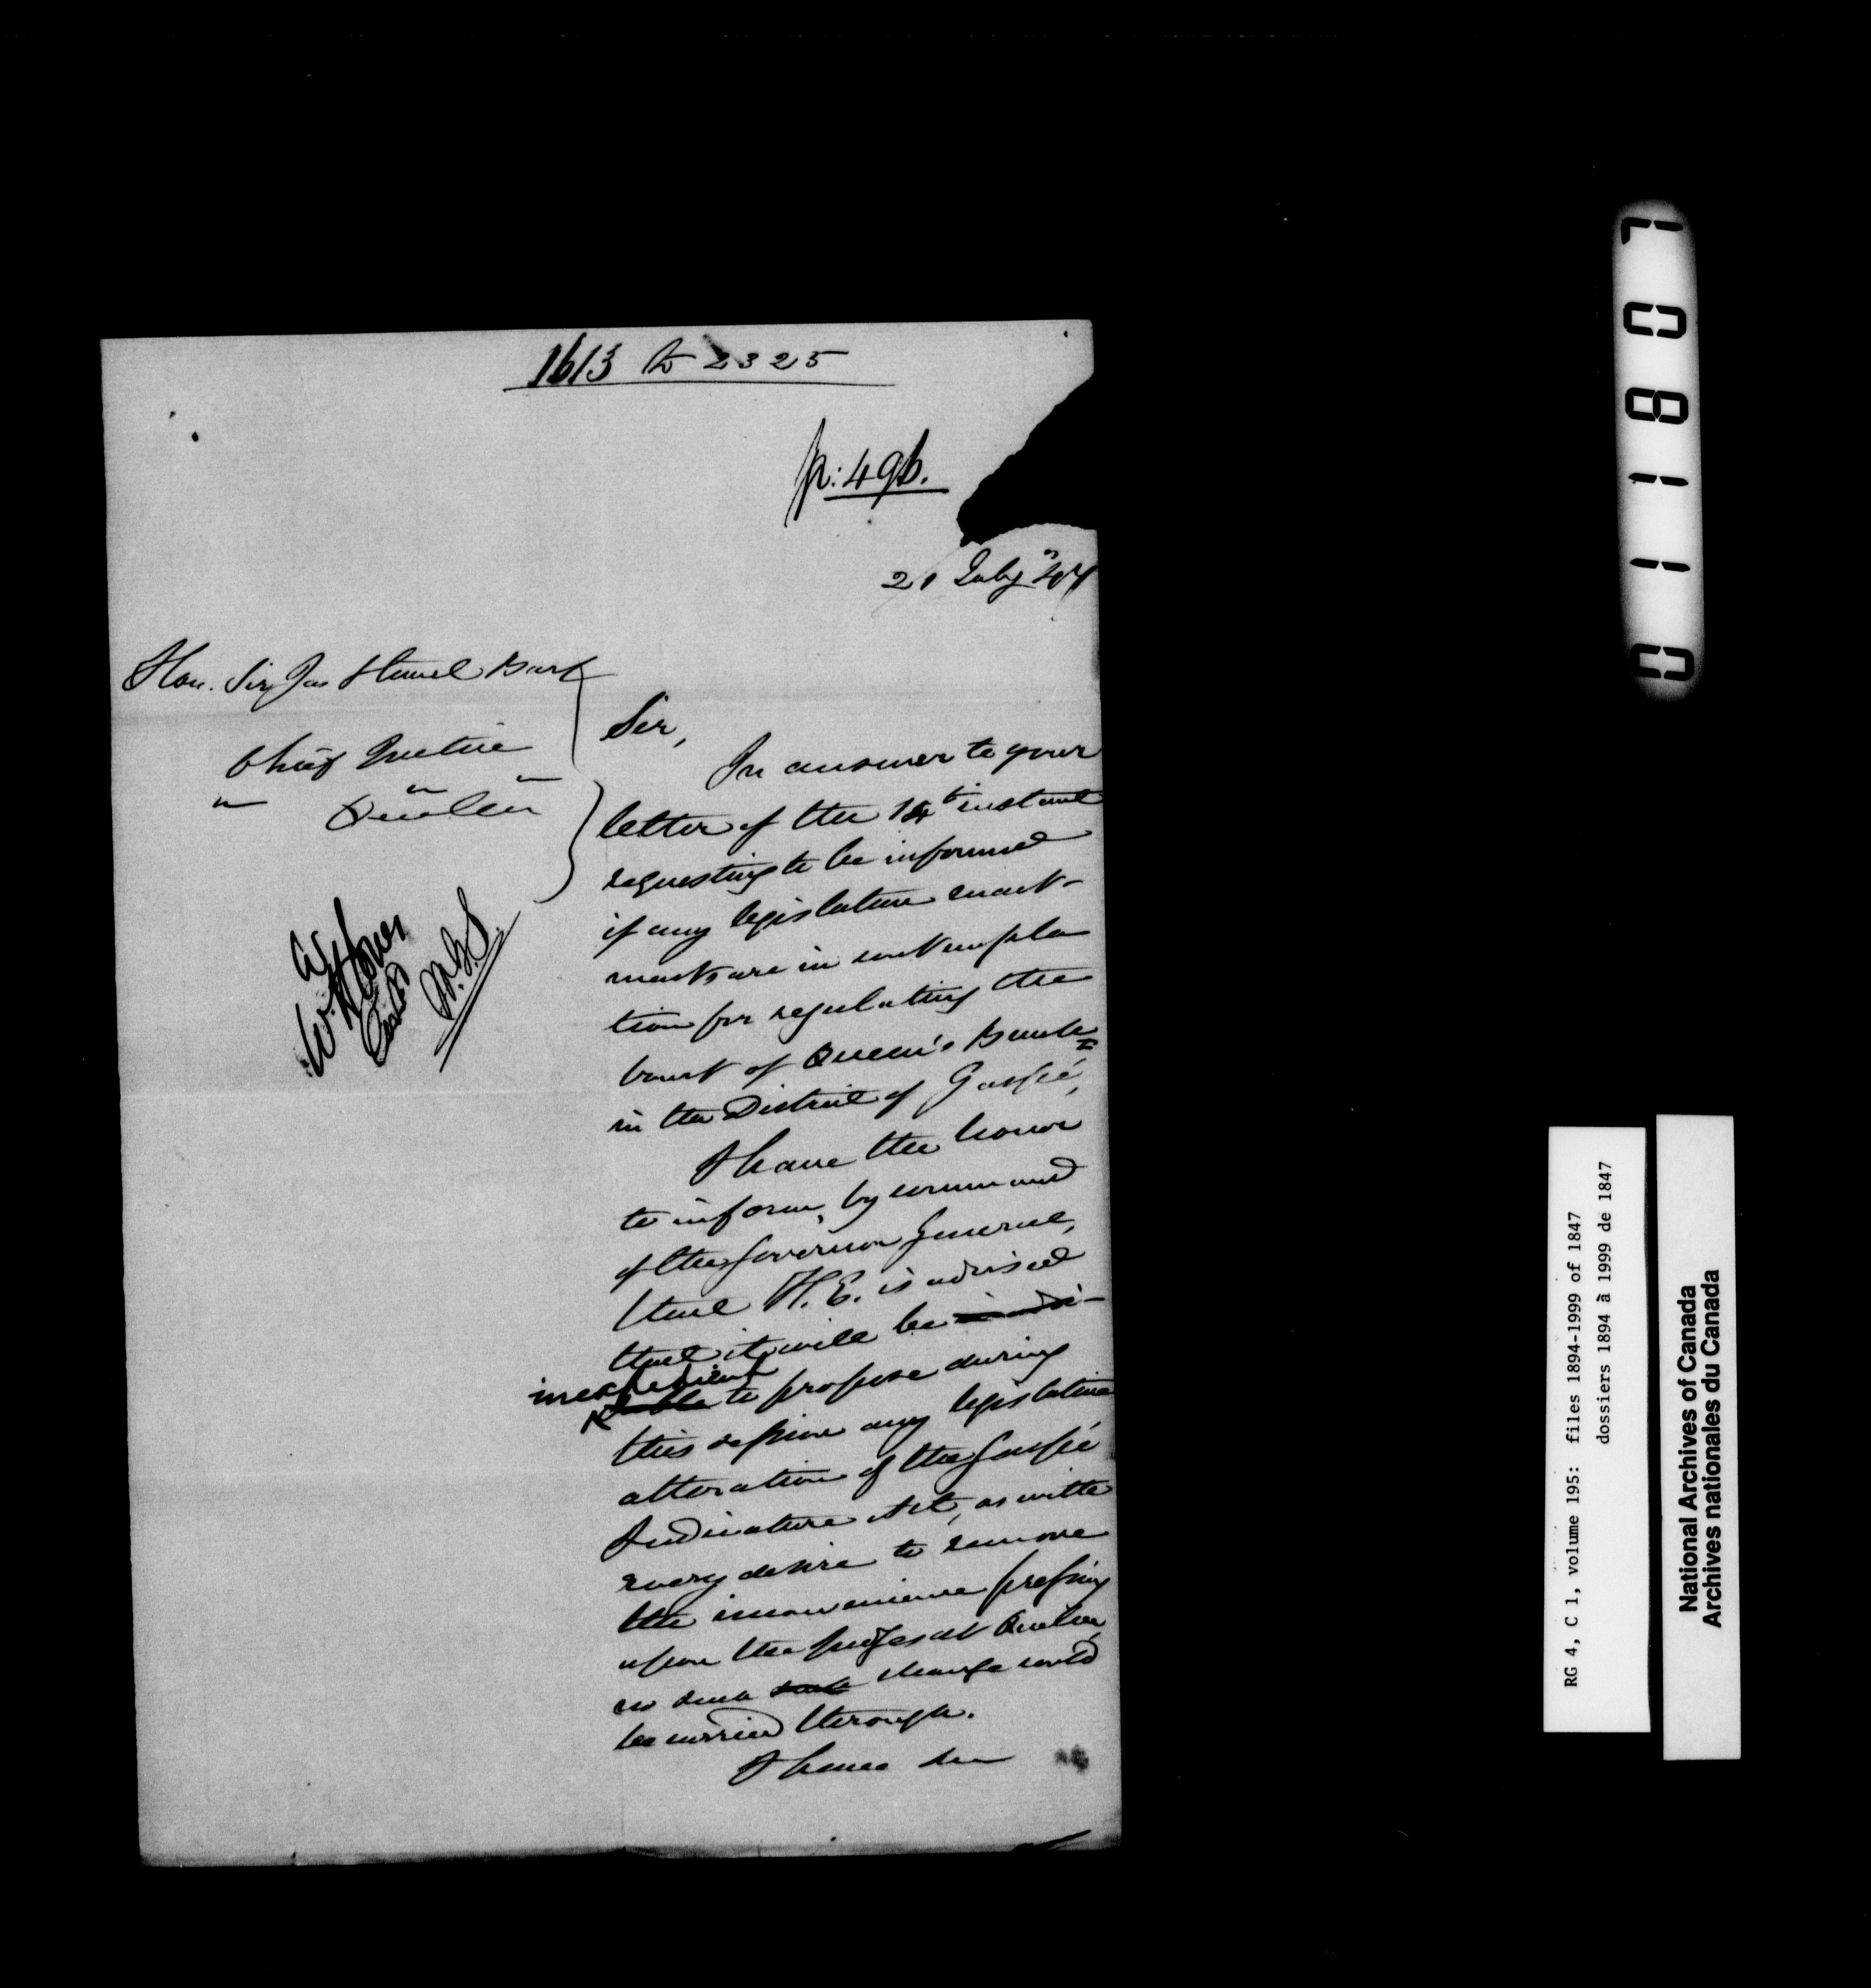 1613 to 2325
p: 496.
21 July 47
Hon. Sir Jas Stuart Bart
Chief Justice
Quebec
Sir,
In answer to your
letter of the 14th instant
requesting to be informed
if any legislative enact-
ments are in contempla
tion for regulating the
Court of Queen's Bench
in the District of Gaspé,
I have the honor
to inform, by command
of the Governor General,
that H.E. is advised
that it will be
inexpedient
to propose during
this session any legislative
alteration of the Gaspé
Judicature Act, as with
every desire to remove
the inconvenience pressing
upon the Judges at Quebec,
no such change could
be carried through.
I have
011807
RG 4, C 1, volume 195: files 1894-1999 of 1847
dossiers 1894 à 1999 de 1847
National Archives of Canada
Archives nationales du Canada